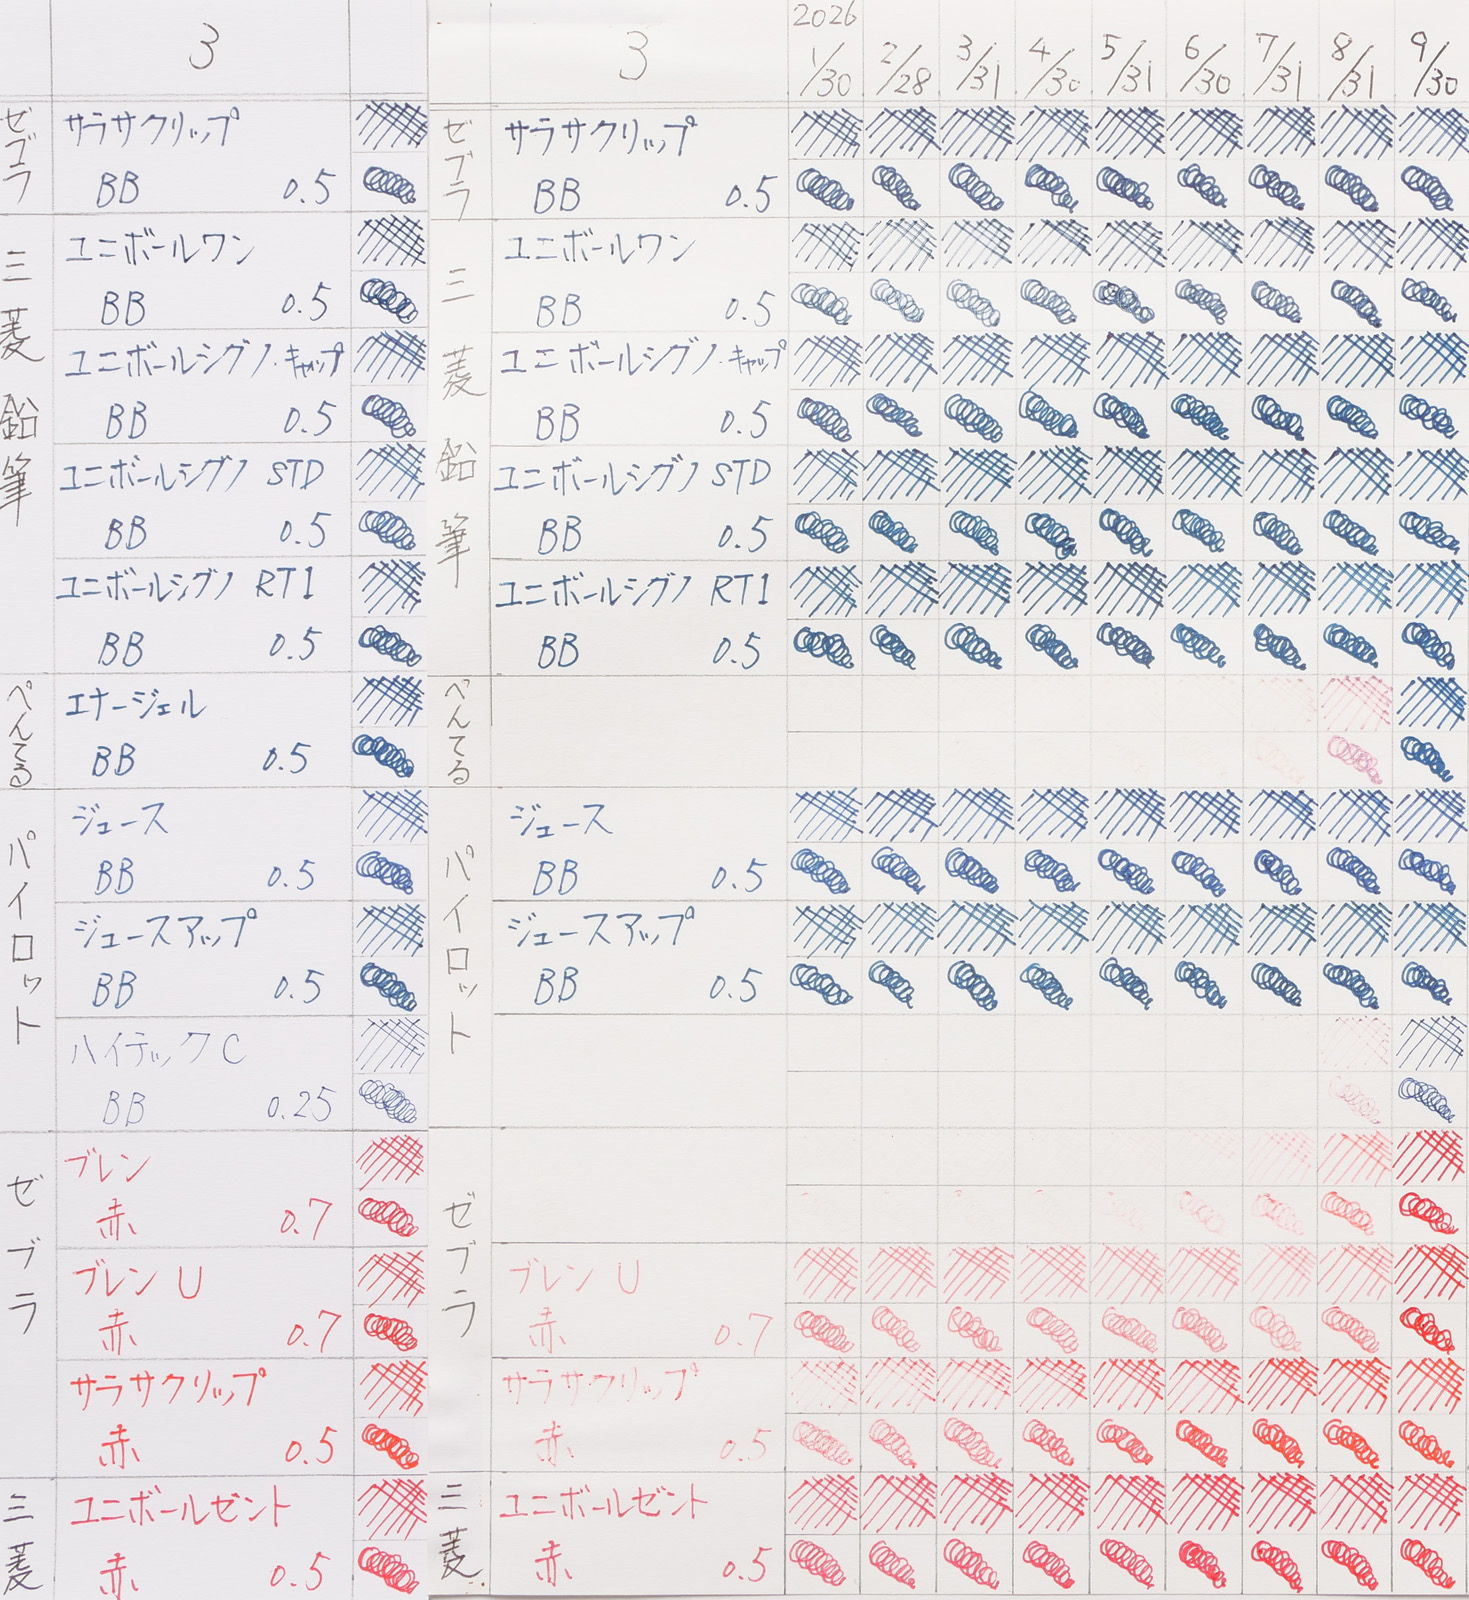 3
ゼブラ
サラサクリップ
BB 0.5
三菱鉛筆
ユニボールワン
BB 0.5
ユニボールシグノ・キャップ
BB 0.5
ユニボールシグノ STD
BB 0.5
ユニボールシグノ RT1
BB 0.5
ぺんてる
エナージェル
BB 0.5
パイロット
ジュース
BB 0.5
ジュースアップ
BB 0.5
ハイテックC
BB 0.25
ゼブラ
ブレン
赤 0.7
ブレンU
赤 0.7
サラサクリップ
赤 0.5
三菱
ユニボールゼント
赤 0.5
3
2026
1/30 2/28 3/31 4/30 5/31 6/30 7/31 8/31 9/30
ゼブラ
サラサクリップ
BB 0.5
三菱鉛筆
ユニボールワン
BB 0.5
ユニボールシグノ・キャップ
BB 0.5
ユニボールシグノ STD
BB 0.5
ユニボールシグノ RT1
BB 0.5
ぺんてる
パイロット
ジュース
BB 0.5
ジュースアップ
BB 0.5
ゼブラ
ブレンU
赤 0.7
サラサクリップ
赤 0.5
三菱
ユニボールゼント
赤 0.5